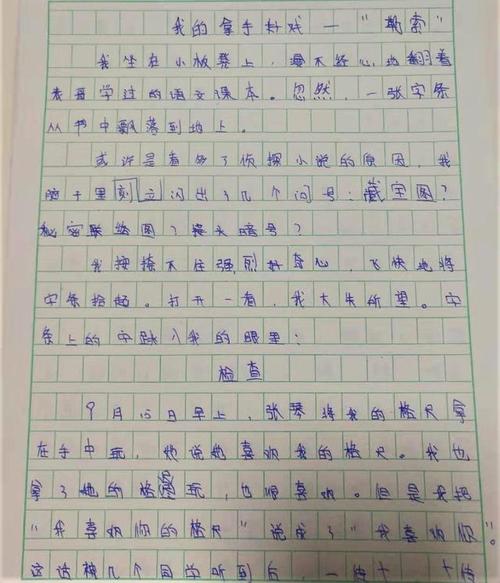 我的拿手好戏—"勒索"
我坐在小板凳上，漫不经心地翻着
表哥学过的语文课本。忽然，一张字条
从书中飘落到地上。
或许是看多了侦探小说的原因，我
脑子里刻立闪出了几个问号：藏宝图？
秘密联络图？接头暗号？
我按捺不住强烈好奇心，飞快地将
字条拾起。打开一看，我大失所望。字
条上的字跳入我的眼里：
检查
9月15日早上，张琴将我的格尺拿
在手中玩，她说她喜欢我的格尺。我也
拿了她的格 玩，也喜欢。但是我把
"我喜欢你的格尺"说成了"我喜欢你"。
这话被几个同学听到后，一传十 十传